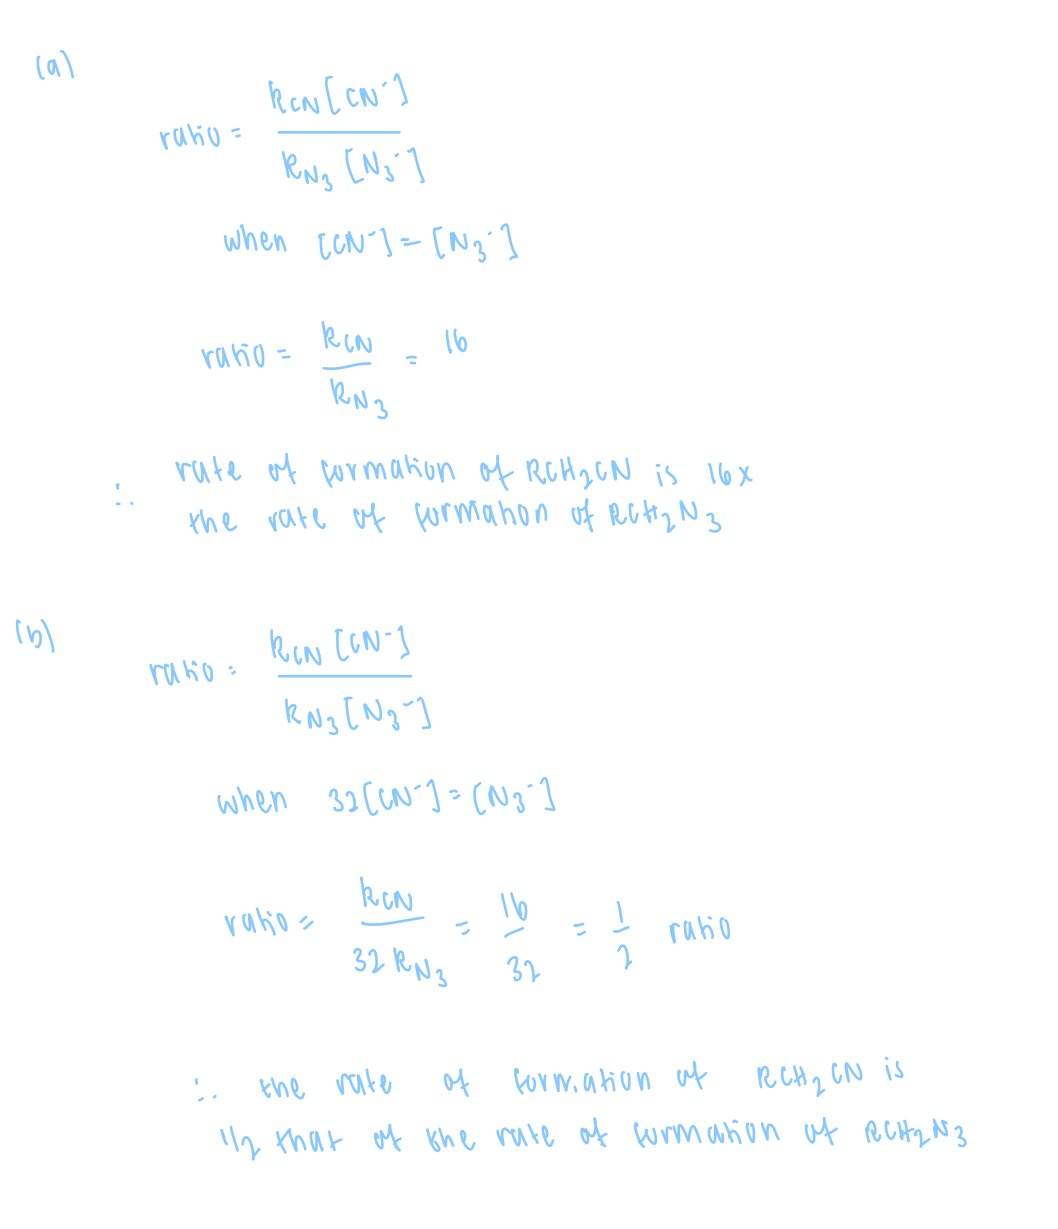 (a)
ratio = k_CN [CN⁻] / k_N₃ [N₃⁻]
when [CN⁻] = [N₃⁻]
ratio = k_CN / k_N₃ = 16
∴ rate of formation of RCH₂CN is 16x
the rate of formation of RCH₂N₃
(b)
ratio = k_CN [CN⁻] / k_N₃ [N₃⁻]
when 32[CN⁻] = [N₃⁻]
ratio = k_CN / 32 k_N₃ = 16 / 32 = 1 / 2 ratio
∴ the rate of formation of RCH₂CN is
1/2 that of the rate of formation of RCH₂N₃